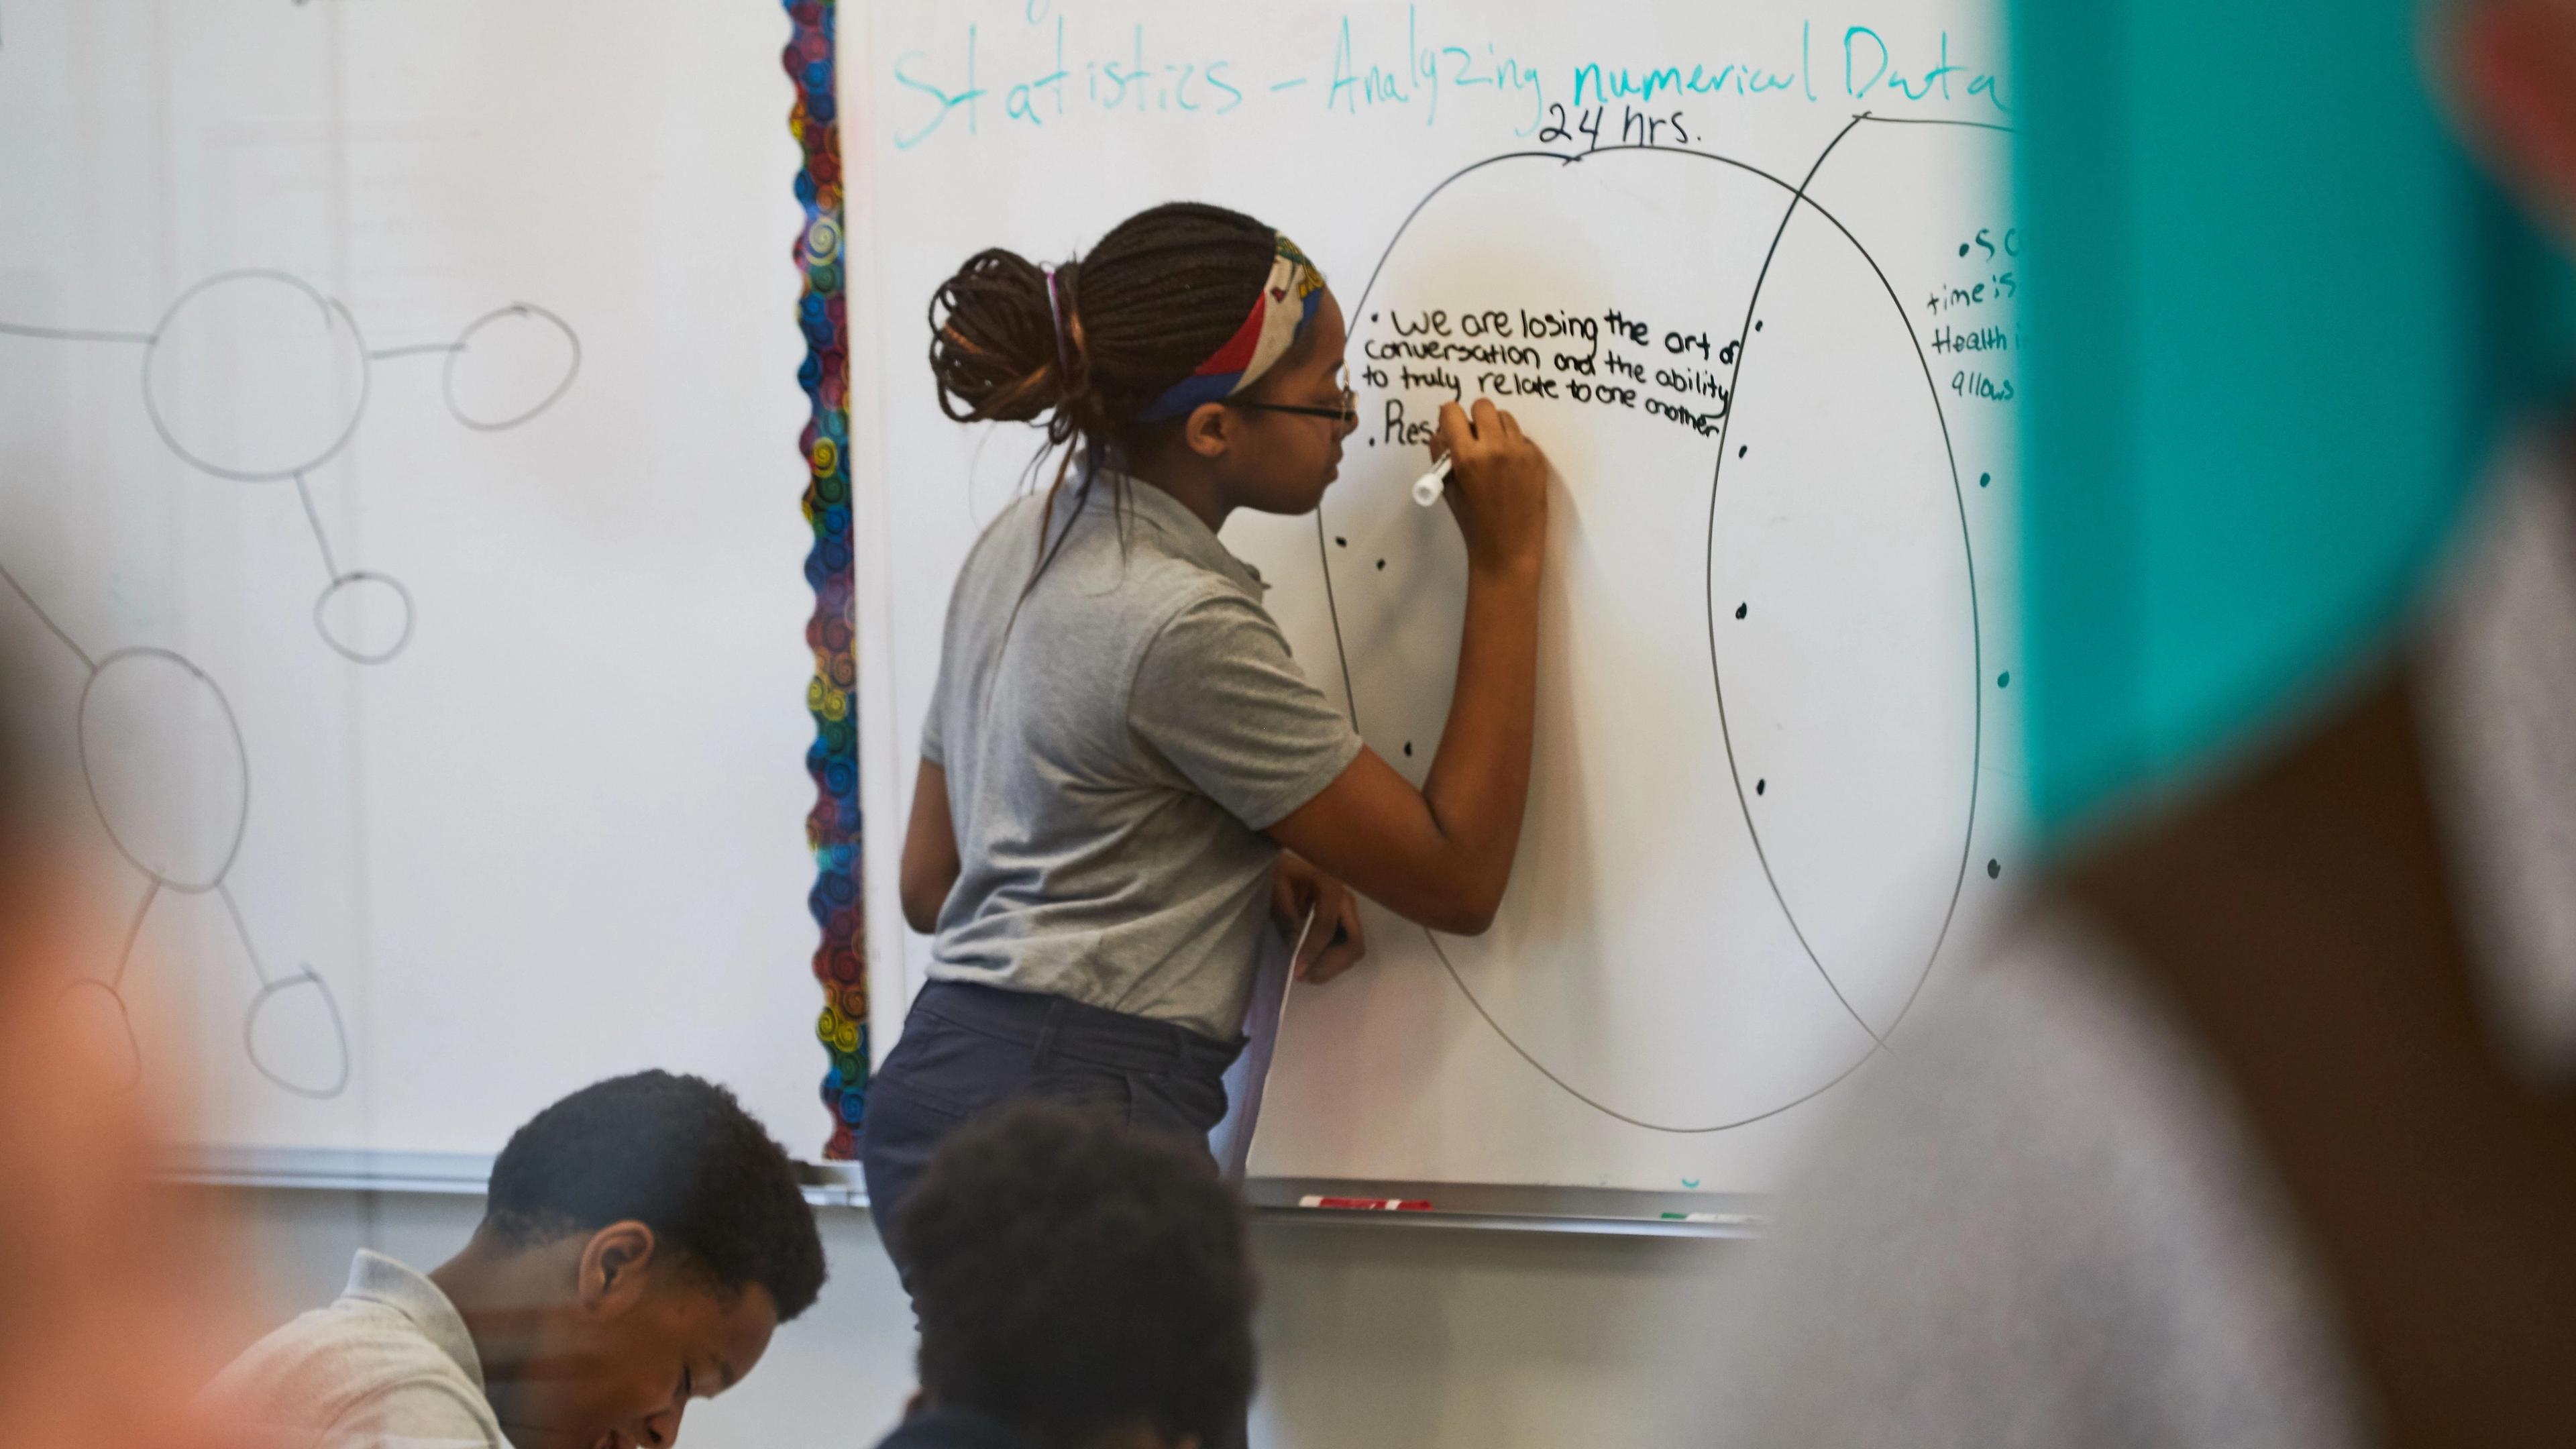 Statistics - Analyzing numerical Data
24 hrs.
• We are losing the art of
conversation and the ability
to truly relate to one another
. Res
time is
Health
allows